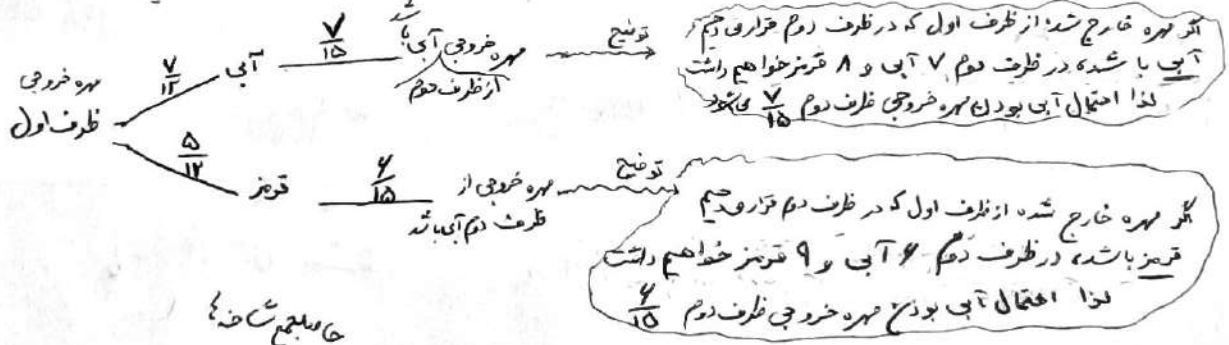 مهره خروجی
ظرف اول
۷/۱۲
آبی
۷/۱۵
مهره خروجی آبی باشد
از ظرف دوم
توضیح
اگر مهره خارج شده از ظرف اول که در ظرف دوم قرار می دهیم
آبی باشد، در ظرف دوم ۷ آبی و ۸ قرمز خواهیم داشت
لذا احتمال آبی بودن مهره خروجی ظرف دوم ۷/۱۵ می شود
۵/۱۲
قرمز
۶/۱۵
مهره خروجی از
ظرف دوم آبی باشد
توضیح
اگر مهره خارج شده از ظرف اول که در ظرف دوم قرار می دهیم
قرمز باشد، در ظرف دوم ۶ آبی و ۹ قرمز خواهیم داشت
لذا احتمال آبی بودن مهره خروجی ظرف دوم ۶/۱۵
حاصلجمع شاخه ها